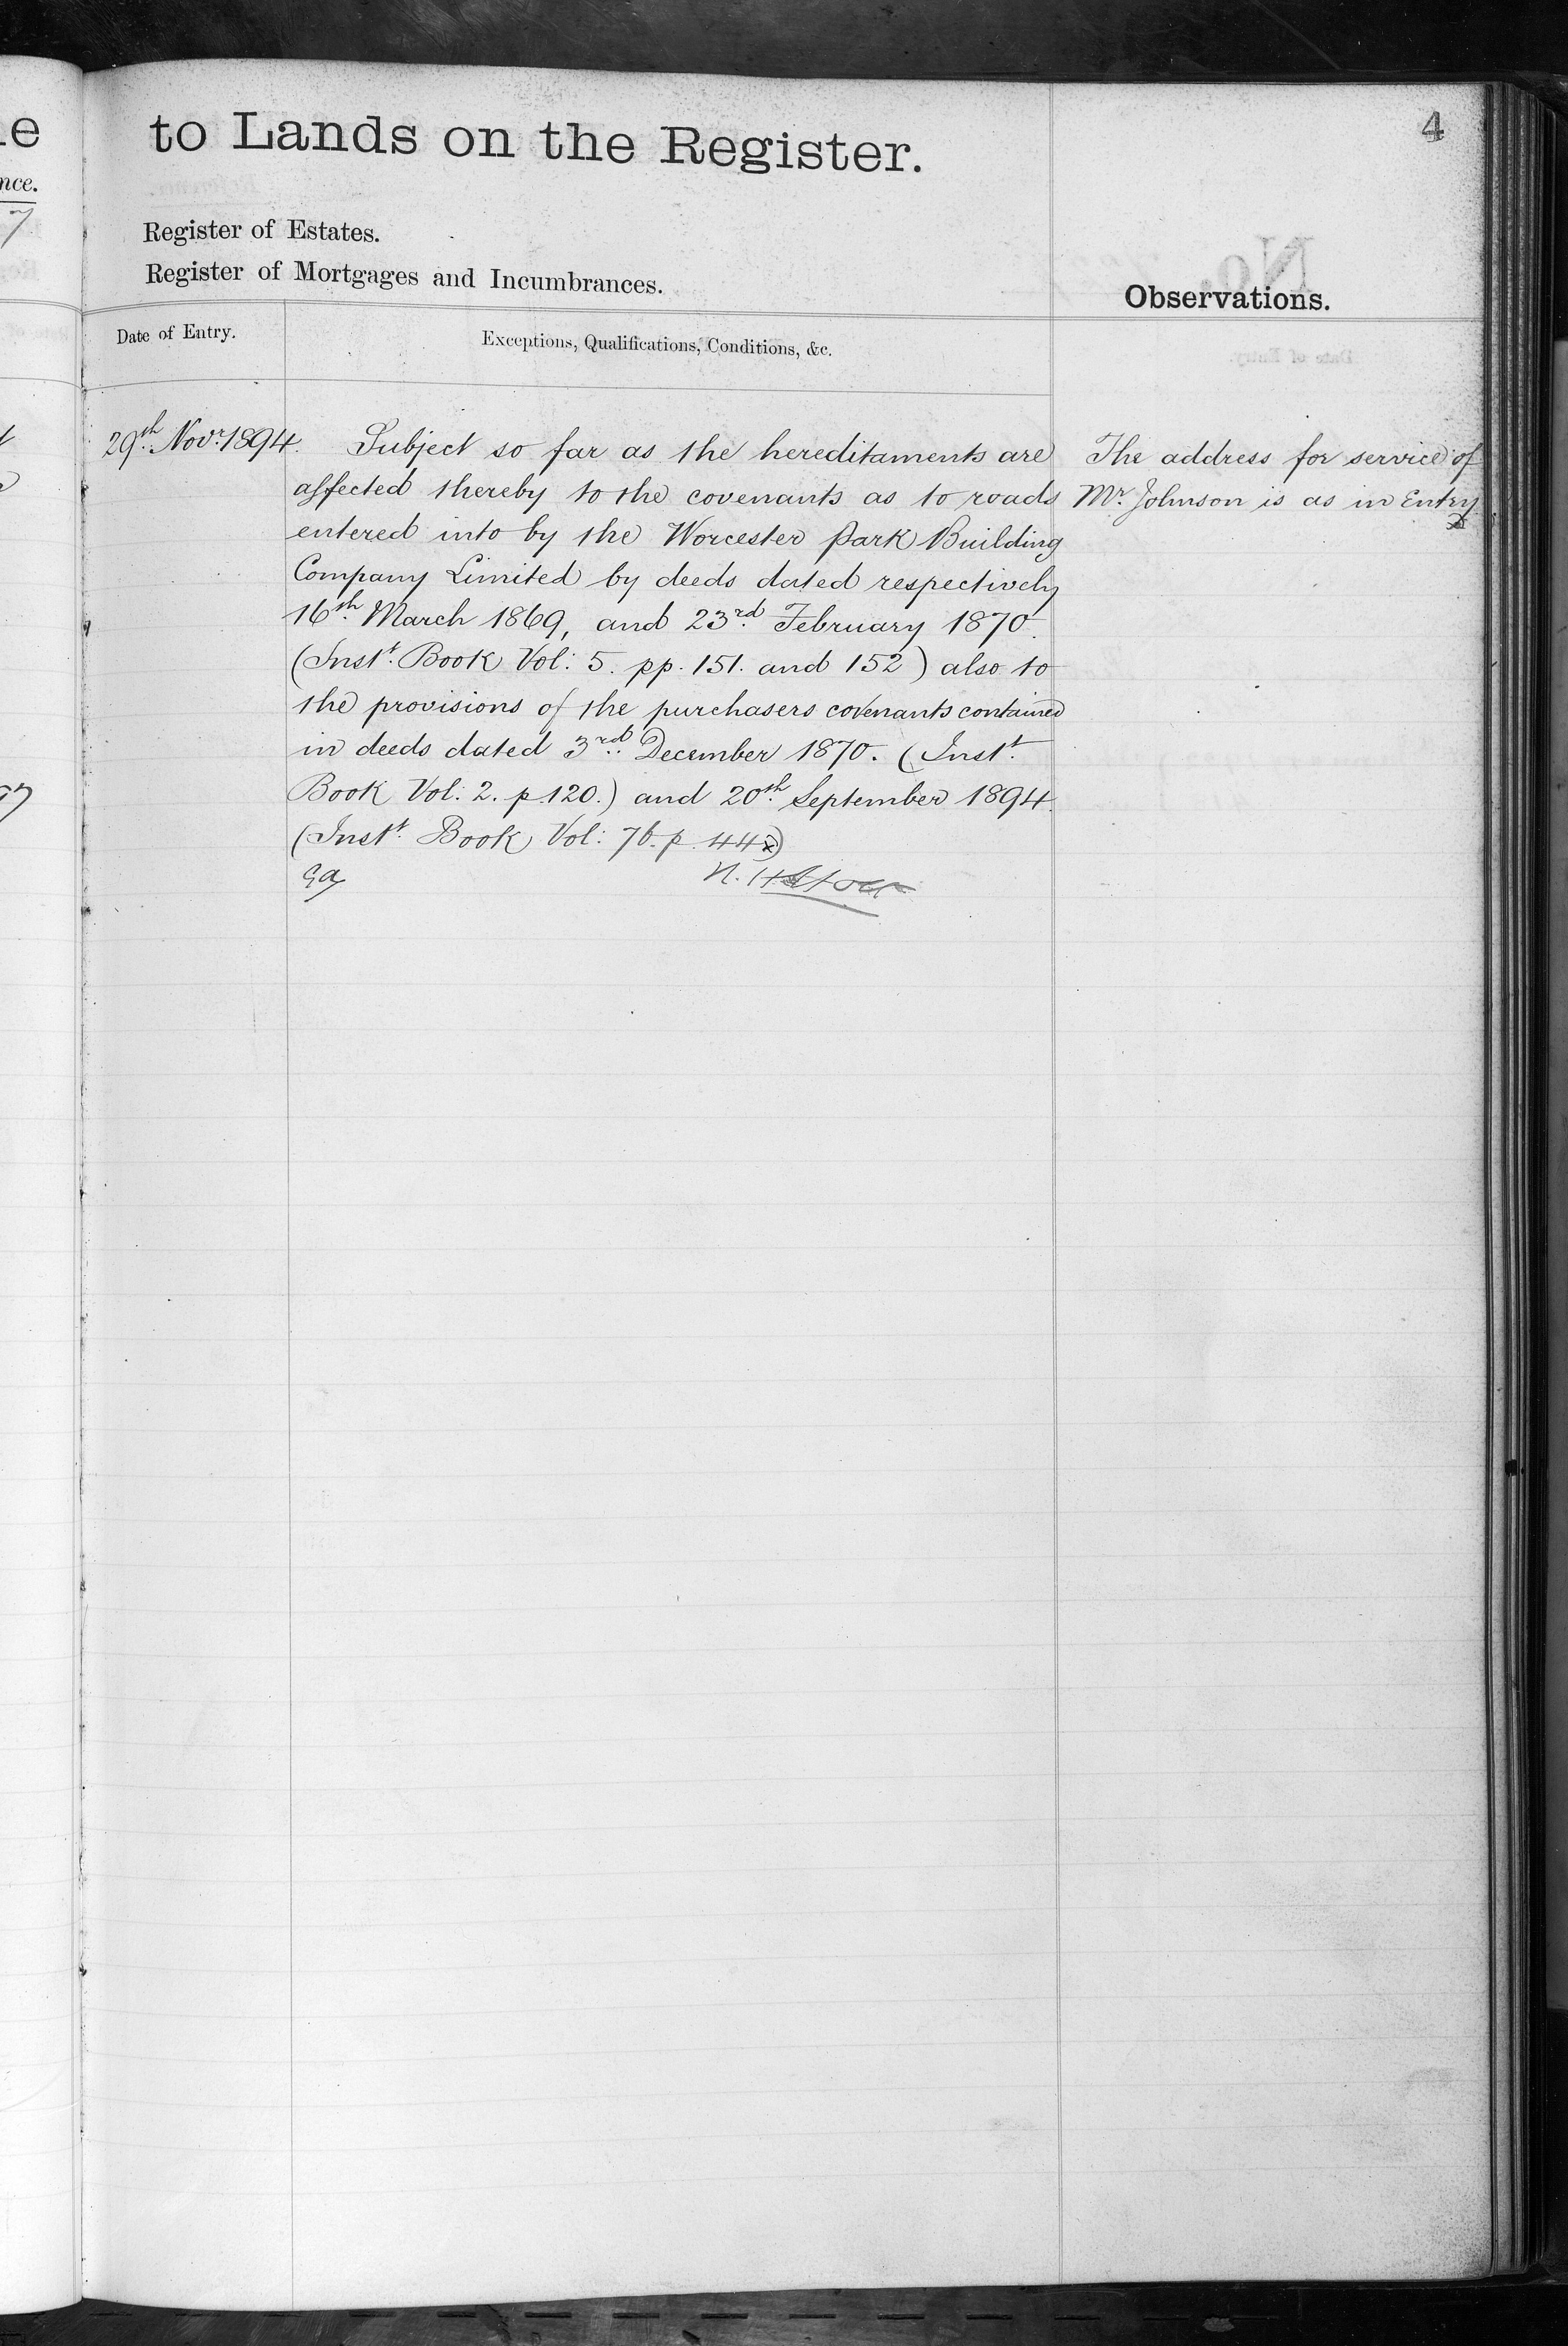 to Lands on the Register.
4
Register of Estates.
Register of Mortgages and Incumbrances.
Observations.
Date of Entry.
Exceptions, Qualifications, Conditions, &c.
29th Novr 1894.
Subject so far as the hereditaments are
affected thereby to the covenants as to roads
entered into by the Worcester Park Building
Company Limited by deeds dated respectively
16th March 1869, and 23rd February 1870.
(Instt Book Vol: 5. pp. 151. and 152) also to
the provisions of the purchasers covenants contained
in deeds dated 3rd December 1870. (Instt
Book Vol: 2. p 120.) and 20th September 1894.
(Instt Book Vol: 76. p. 44)
The address for service of
Mr. Johnson is as in Entry